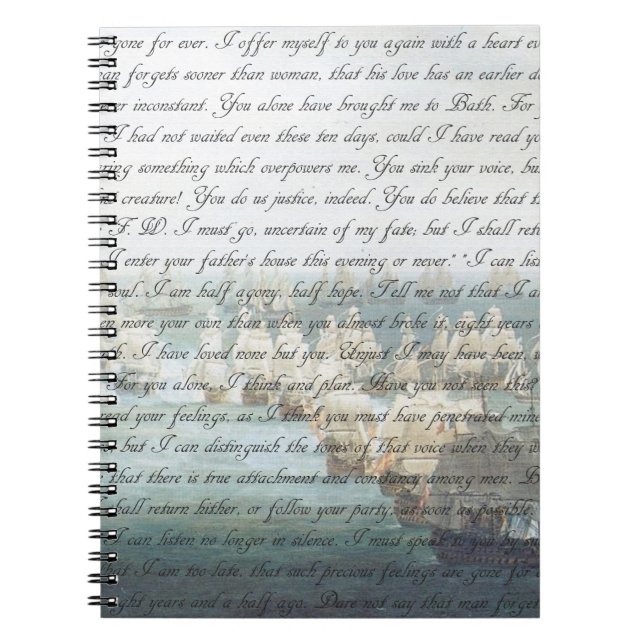 gone for ever. I offer myself to you again with a heart ev
an forgets sooner than woman, that his love has an earlier d
er inconstant. You alone have brought me to Bath. For
I had not waited even these ten days, could I have read yo
ring something which overpowers me. You sink your voice, bu
creature! You do us justice, indeed. You do believe that th
F. W. I must go, uncertain of my fate; but I shall retu
I enter your father's house this evening or never." "I can lis
soul. I am half agony, half hope. Tell me not that I a
en more your own than when you almost broke it, eight years
h. I have loved none but you. Unjust I may have been, w
For you alone, I think and plan. Have you not seen this?
read your feelings, as I think you must have penetrated mine
, but I can distinguish the tones of that voice when they w
e that there is true attachment and constancy among men. B
shall return hither, or follow your party, as soon as possible.
I can listen no longer in silence. I must speak to you by su
hat I am too late, that such precious feelings are gone for
ght years and a half ago. Dare not say that man forget